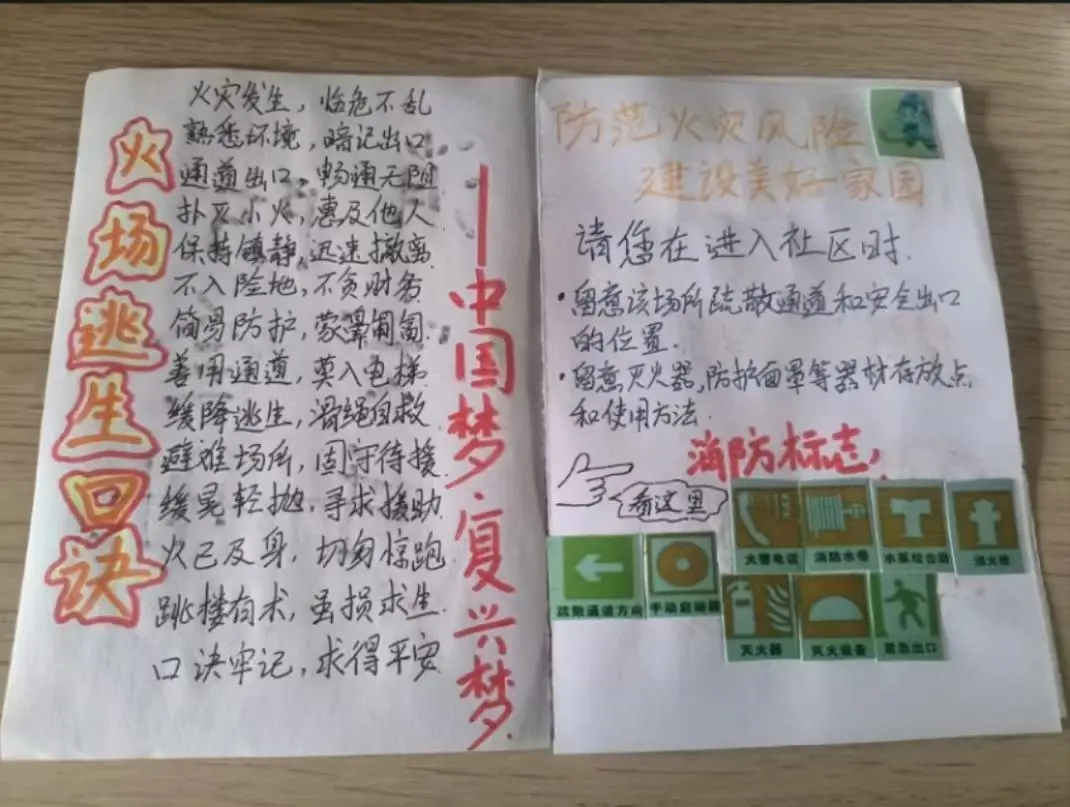 火场逃生口诀
火灾发生，临危不乱
熟悉环境，暗记出口
通道出口，畅通无阻
扑灭小火，惠及他人
保持镇静，迅速撤离
不入险地，不贪财务
简易防护，蒙鼻匍匐
善用通道，莫入电梯
缓降逃生，滑绳自救
避难场所，固守待援
缓晃轻抛，寻求援助
火已及身，切勿惊跑
跳楼有术，虽损求生
口诀牢记，求得平安
——中国梦·复兴梦
防范火灾风险
建设美好家园
请您在进入社区时
·留意该场所疏散通道和安全出口
的位置.
·留意灭火器,防护面罩等器材存放点
和使用方法.
消防标志
看这里
火警电话
消防水带
水泵结合器
消火栓
疏散通道方向
手动启动器
灭火器
灭火设备
紧急出口